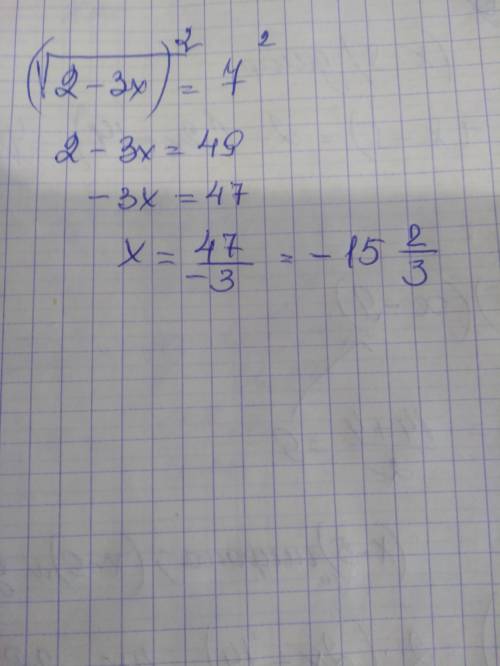 (√2 - 3x)² = 7²
2 - 3x = 49
- 3x = 47
x = 47/-3 = - 15 2/3